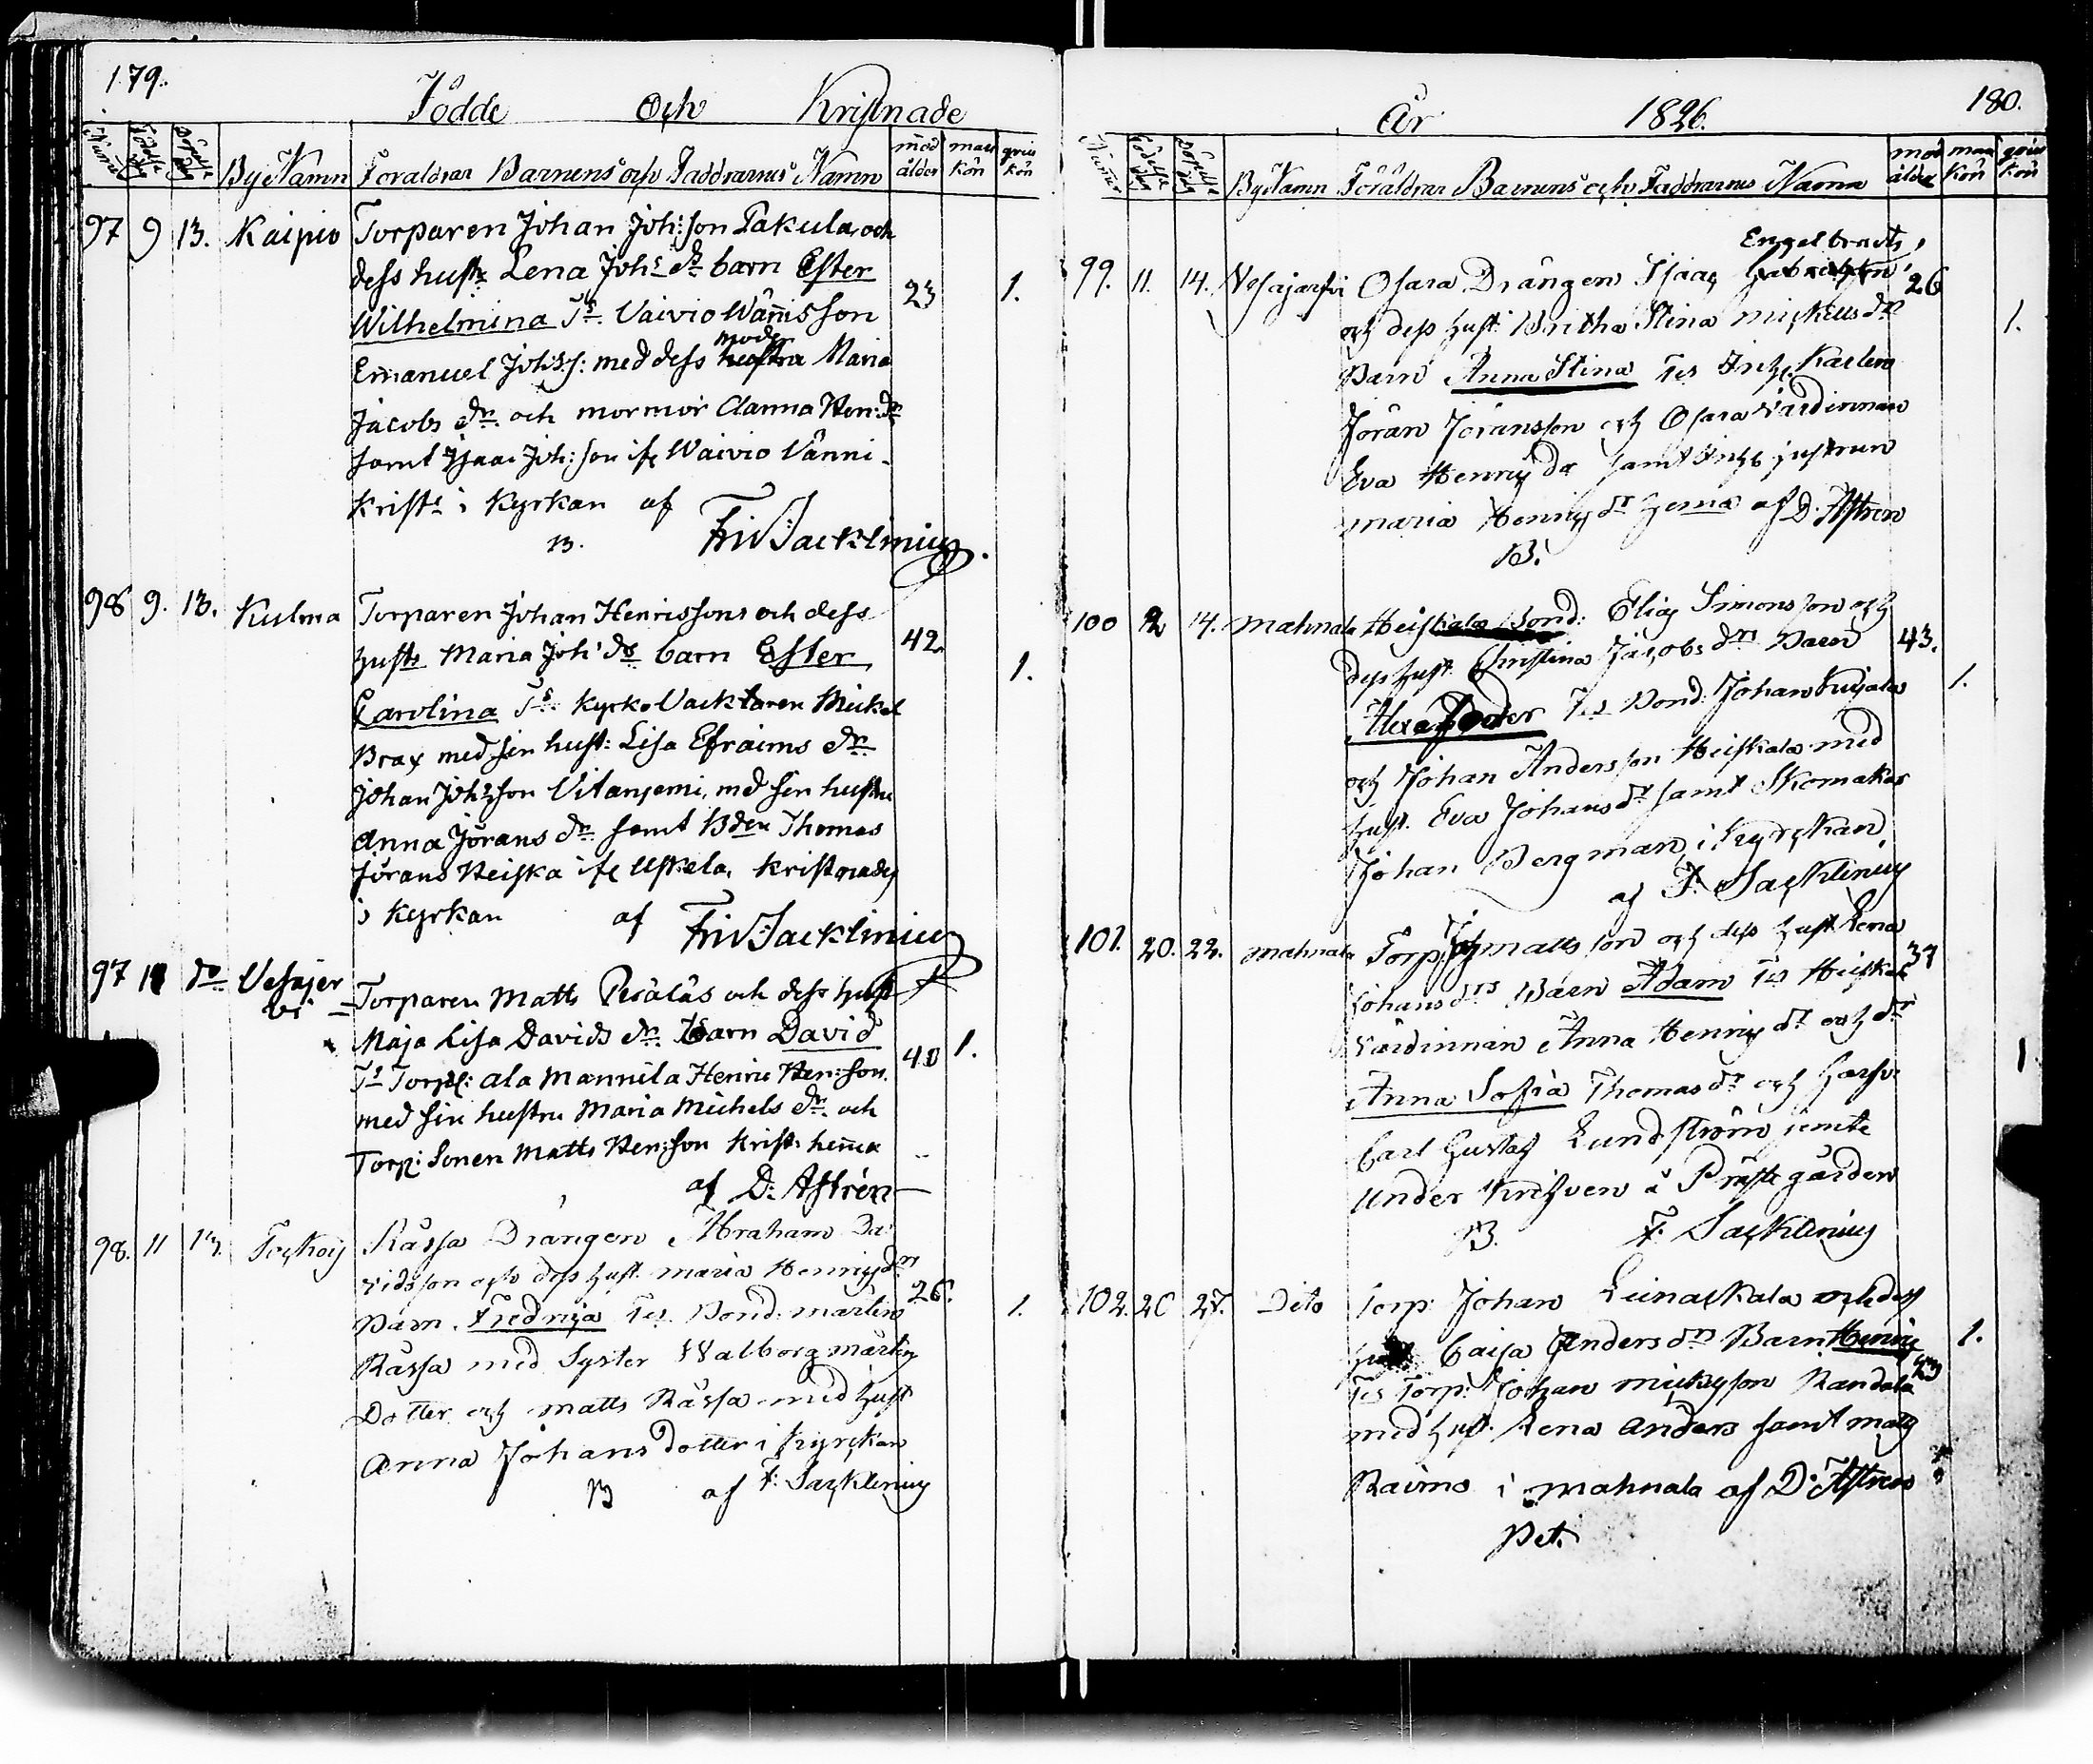 179.
Födde Och Kristnade
Numer Födelse dag Döpelse dag By Namn Föräldrar Barnens och Faddrarnes Namn mod ålder man kön qvin kön
97 9 13. Kaipio Torparen Johan Joh:son Pakula, och
dess hust: Lena Johs dr barn Ester 23 1.
Wilhelmina Ts Vaivio Wännisson
moder
Emanuel Johs:s: med dess hustru Maria
Jacobs dr och mormor Anna Hen: dr
samt Isaac Joh:son if: Waivio Vänni
Krists i Kyrkan af
B. Fr: W: Jacklinius.
98 9. 13. Kulma Torparen Johan Henrissons och dess 42
hustr Maria Joh' dr barn Ester 1.
Carolina Ts Kyrko Vacktaren Mickel
Brax med sin hust: Lisa Efraims dr
Johan Johsson Vitaniemi, med sin hustru
Anna Jörans dr samt Bden Thomas
Jörans Heiska if: Uskela, Kristnades
i Kyrkan af Fr: W: Jacklinius
97 11 do Vesajer
vi Torparen Matts Peräläs och dess hust
Maja Lisa Davids dr. Barn David 40 1.
Ts Torp: ala Mannila Henric Hen:son.
med sin hustru Maria Michels dr och
Torp: Sonen Matts Hen:son Krist: hema
af D: Astrén
98. 11 13. Tockois Rässa Drängen Abraham Da:
vidsson och dess hust. Maria Henrics dr 26.
Barn. Fredrica Tes Bond: Martin 1.
Rässa med Syster Walborg Martins
Dotter och Matts Rässa med hust
Anna Johans dotter i Kyrckan
B af F: Jacklinius
År 1826. 180.
Numer Födelse dag Döpelse dag By Namn Föräldrar Barnens och Faddrarnes Namn mod ålder man kön qvin kön
Engelbrects,
99. 11. 14. Vesajärfvi Osara Drängen Isaac 26
och dess hust: Britha Stina Mickels dr 1.
Barn Anna Stina Tes Inhs: Karlen
Jöran Jöransson och Osara Värdinnan
Eva Henrics dr samt Inhs hustrun
Maria Henrics dr hema af D: Astren
B.
100 12 14. Mahnala Heiskala Bond: Elias Simonsson och
dess hust Christina Jacobs dr Barn 43.
Alexander Tes Bond: Johan Kujala 1.
och Johan Andersson Heiskala med
hust. Eva Johans dr samt Skomakar
Johan Bergman i Kyrckan
af F. Jacklinius
101. 20. 22. Mahnala Torp: Joh Mattsson och dess hust Lena 37
Johans drs Barn Adam Tes Heiskala
Värdinnan Anna Henrics dr och dr
Anna Sofia Thomas dr och
Carl Gustaf Lundström jemte
under skrifven å Prästgården
B. F. Jacklinius
102. 20 27. Dito Torp: Johan Leinackala och dess
Caisa Anders dr Barn Henric 1.
Tes Torp: Johan Mickelsson Randala 23
med hust. Lena Anders samt Matts
Raimo i Mahnala af D: Astren
Pet.